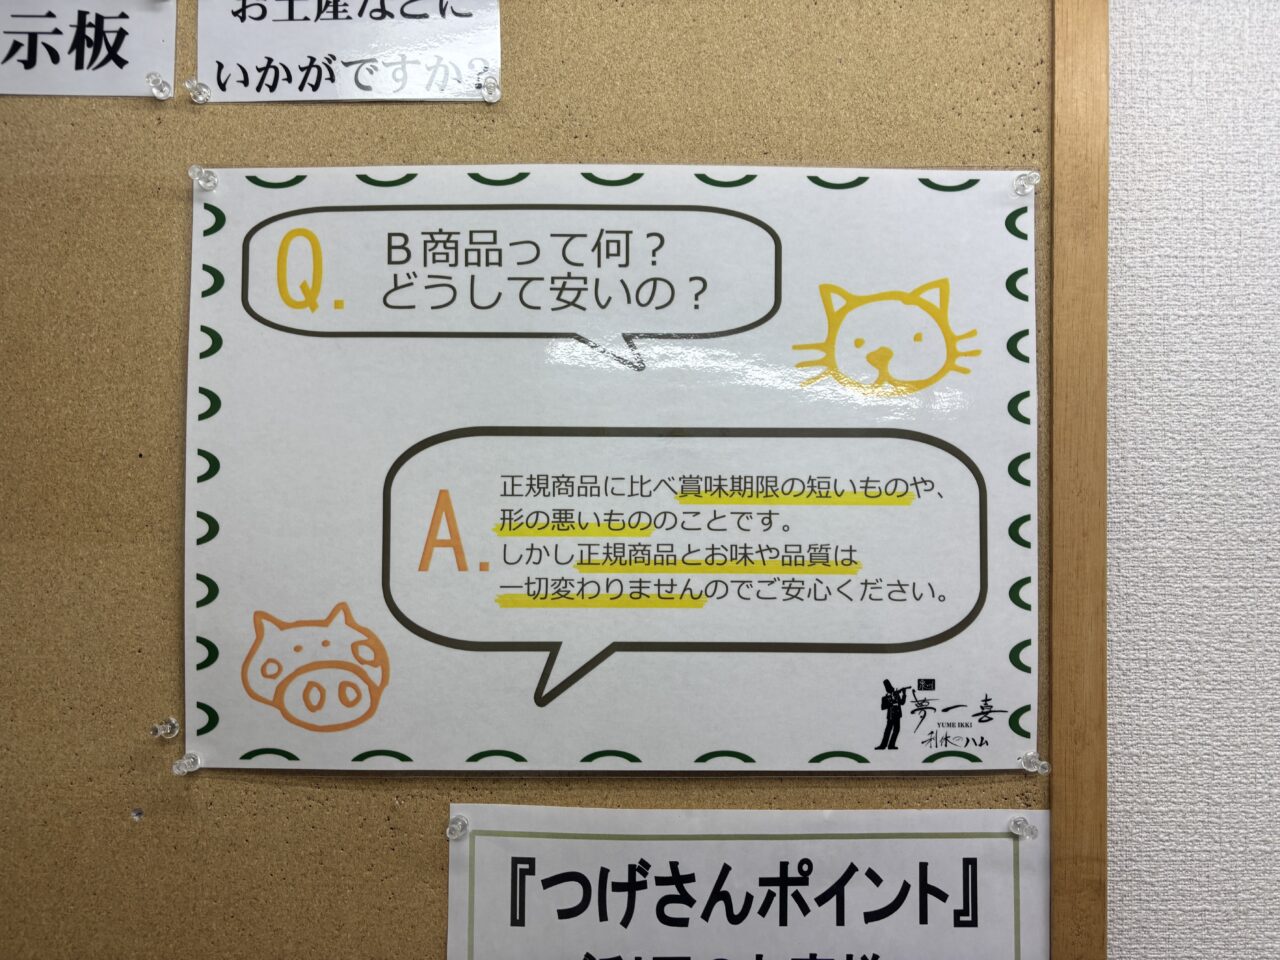 示板
お土産などに
いかがですか?
Q.
B商品って何？
どうして安いの？
A.
正規商品に比べ賞味期限の短いものや、
形の悪いもののことです。
しかし正規商品とお味や品質は
一切変わりませんのでご安心ください。
夢一喜
YUME IKKI
利休のハム
『つげさんポイント』